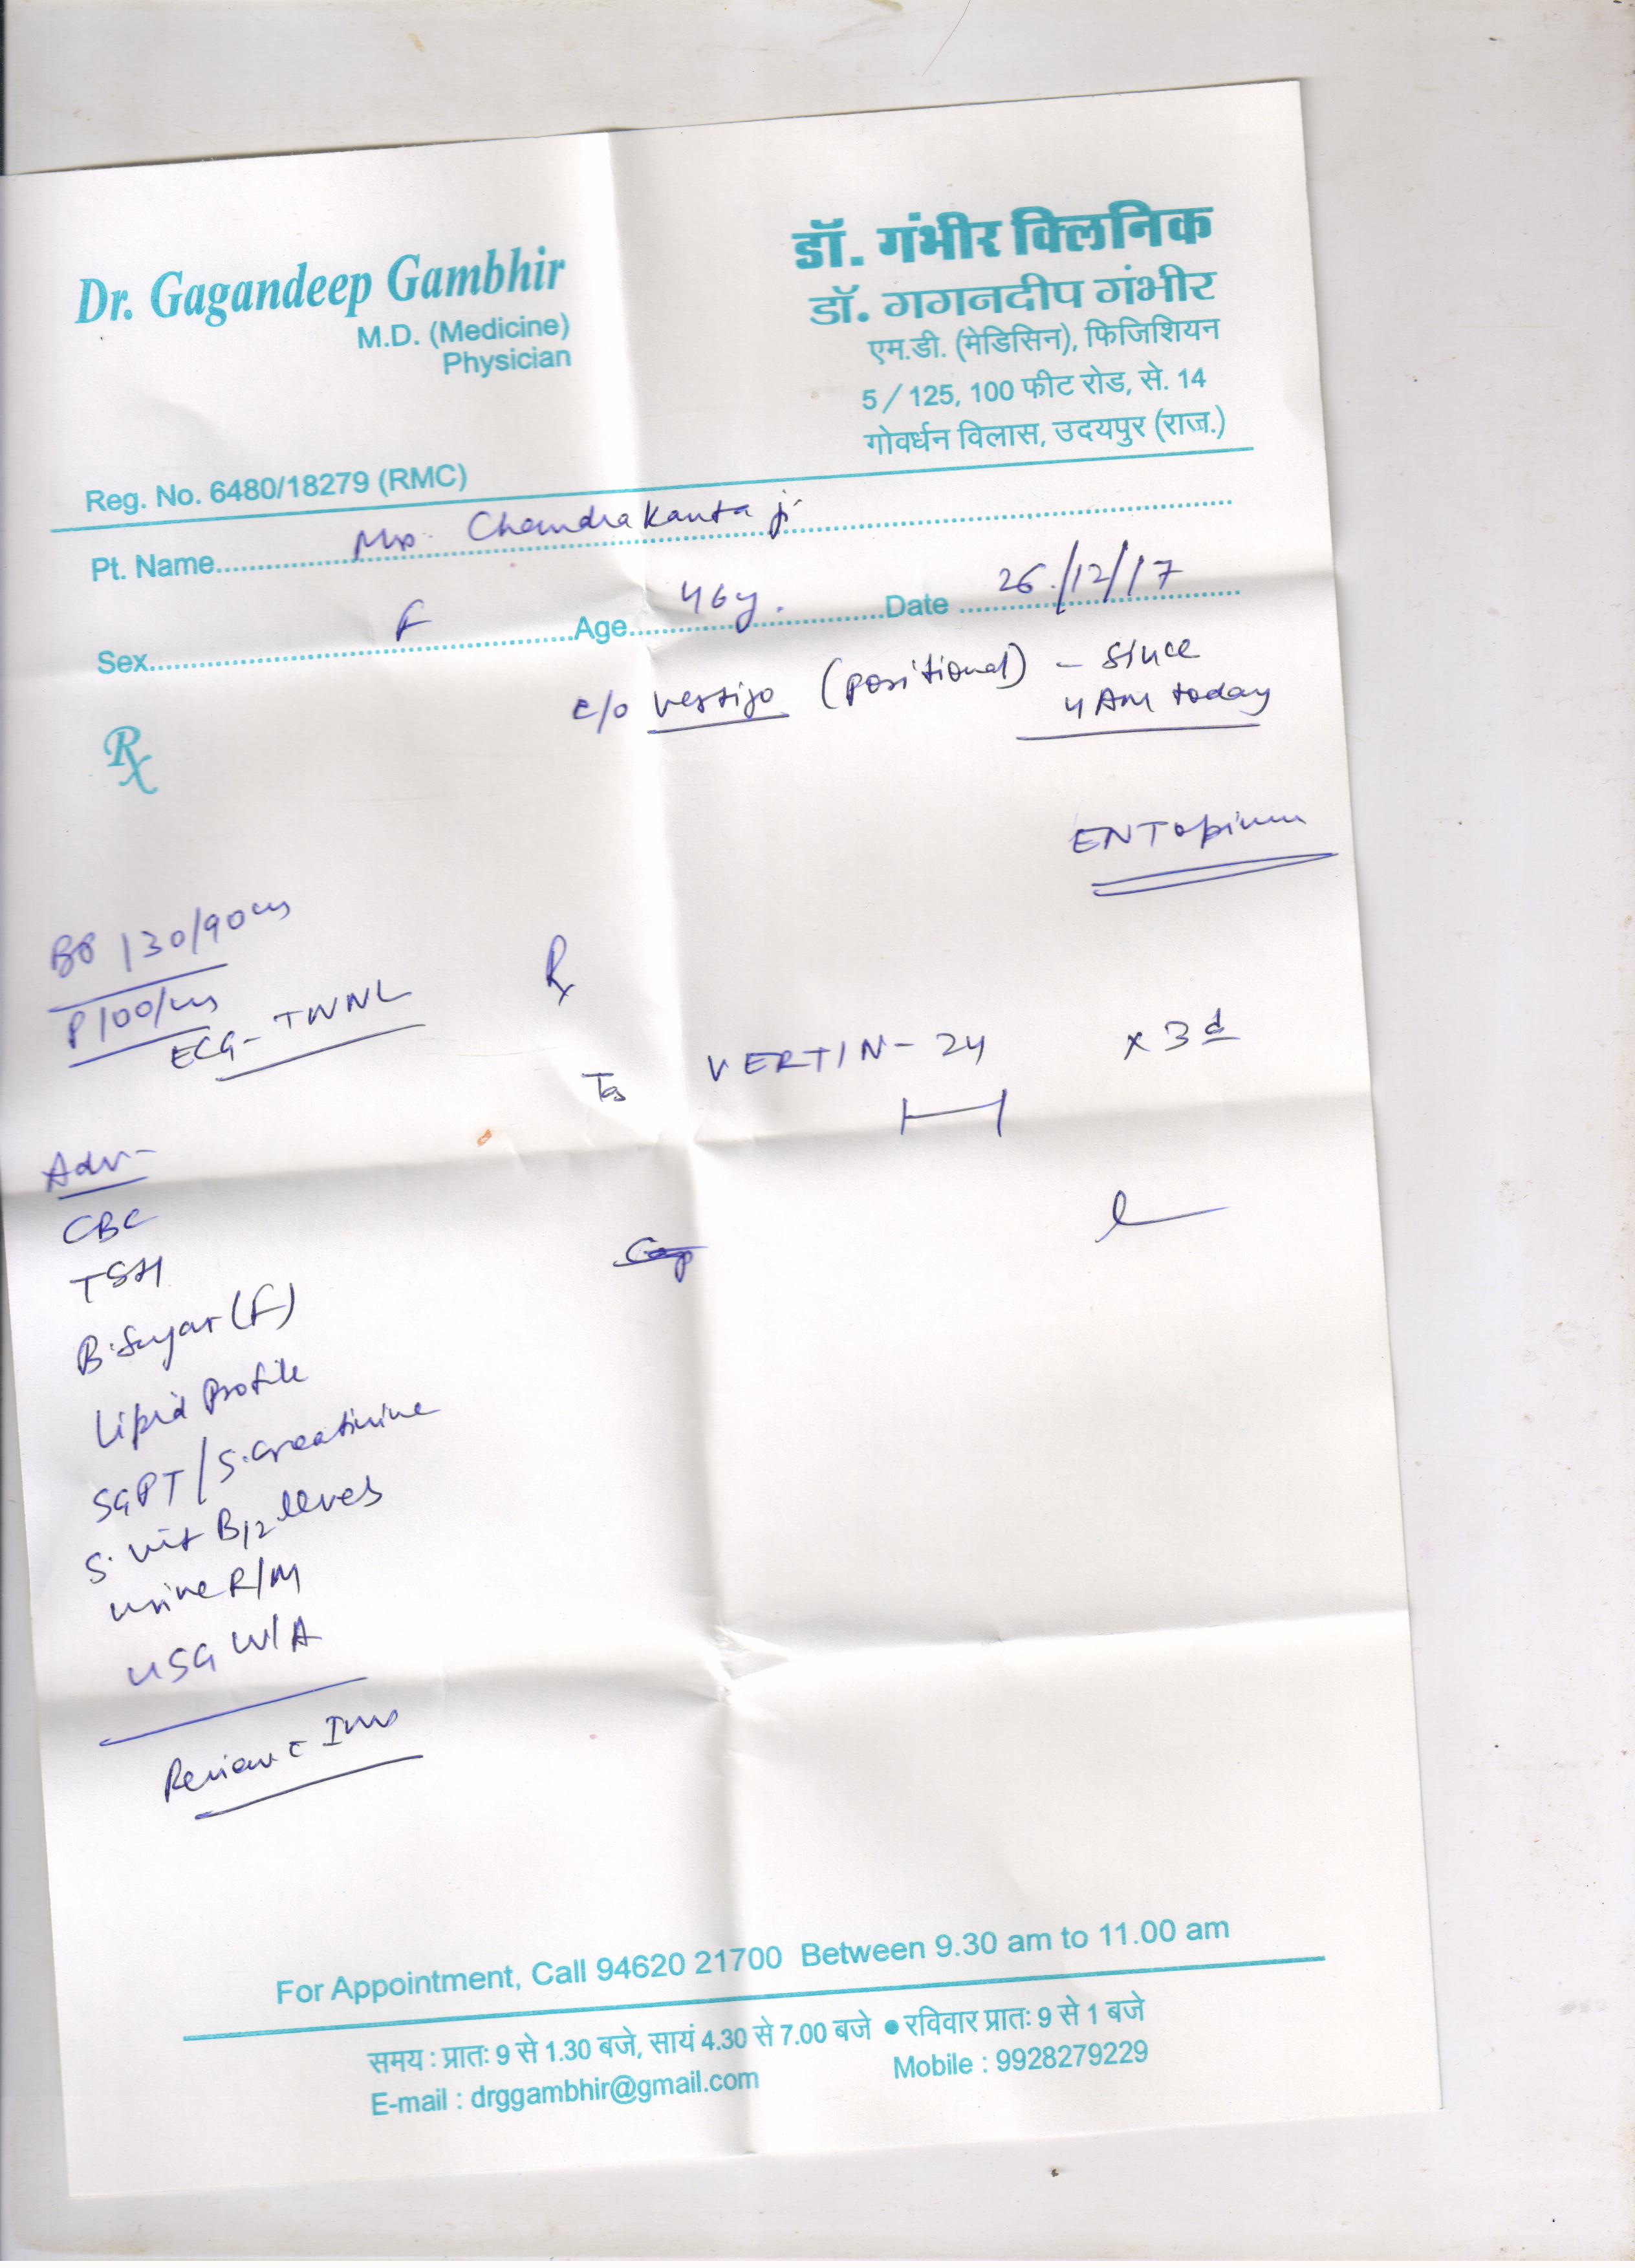 Dr. Gagandeep Gambhir
M.D. (Medicine)
Physician
Reg. No. 6480/18279 (RMC)
डॉ. गंभीर क्लिनिक
डॉ. गगनदीप गंभीर
एम.डी. (मेडिसिन), फिजिशियन
5 / 125, 100 फीट रोड, से. 14
गोवर्धन विलास, उदयपुर (राज.)
Pt. Name Mrs. Chandrakanta ji
Sex F Age 46y. Date 26/12/17
Rx
c/o vertigo (positional) - since
4 AM today
ENT opinion
BP 130/90
P 100/
ECG - TWNL
Rx
VERTIN - 24 x 3d
Adv -
CBC
TSH
B. Sugar (F)
Lipid Profile
SGPT / S. Creatinine
S. Vit B12 levels
urine R/M
USG W/A
Review c Inv
For Appointment, Call 94620 21700 Between 9.30 am to 11.00 am
समय : प्रातः 9 से 1.30 बजे, सायं 4.30 से 7.00 बजे ● रविवार प्रातः 9 से 1 बजे
E-mail : drggambhir@gmail.com Mobile : 9928279229